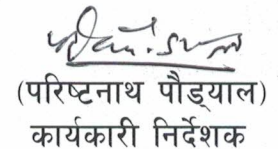 (परिष्टनाथ पौड्याल)
कार्यकारी निर्देशक